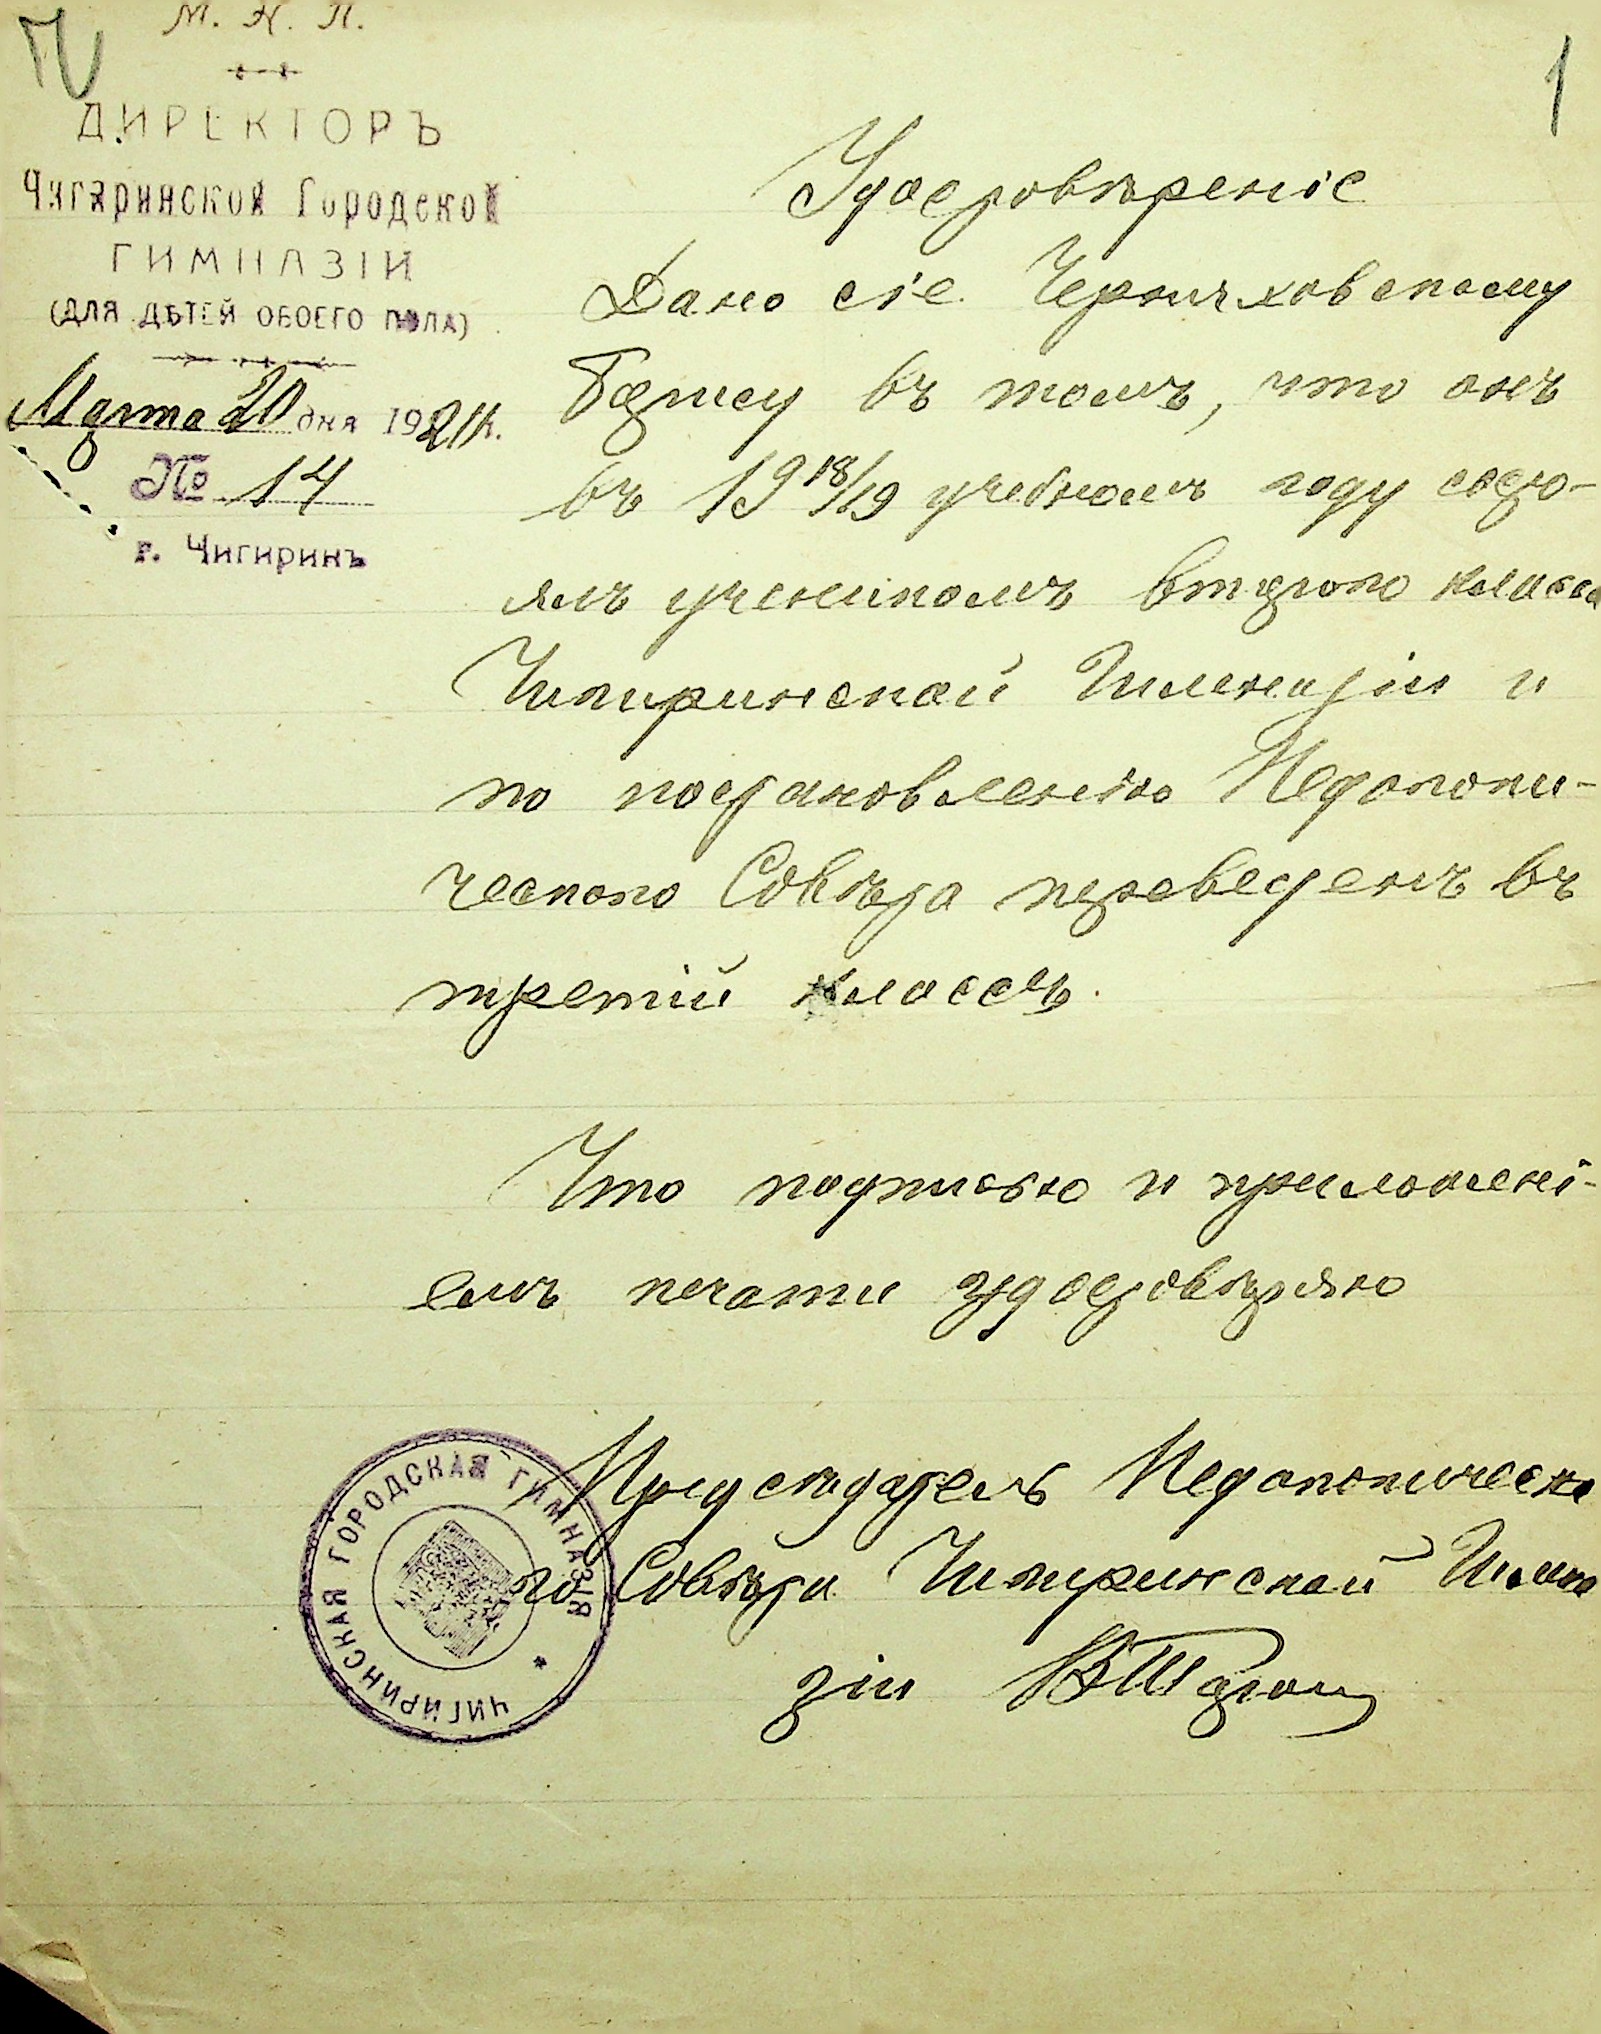 М. Н. П.
1
ДИРЕКТОРЪ
Чигиринской Городской
ГИМНАЗІИ
(ДЛЯ ДѢТЕЙ ОБОЕГО ПОЛА)
Марта 20 дня 1921 г.
№ 14
г. Чигиринъ
Удостовѣреніе
Дано сіе Черняховскому
Борису въ томъ, что онъ
въ 1918/19 учебномъ году состо-
ялъ ученикомъ второго класса
Чигиринской Гимназіи и
по постановленію Педагоги-
ческого Совѣта переведенъ въ
третій классъ.
Что подписью и приложені-
емъ печати удостовѣряю
Предсѣдатель Педагогическо
го Совѣта Чигиринской Гимна
зіи
ЧИГИРИНСКАЯ ГОРОДСКАЯ ГИМНАЗІЯ *